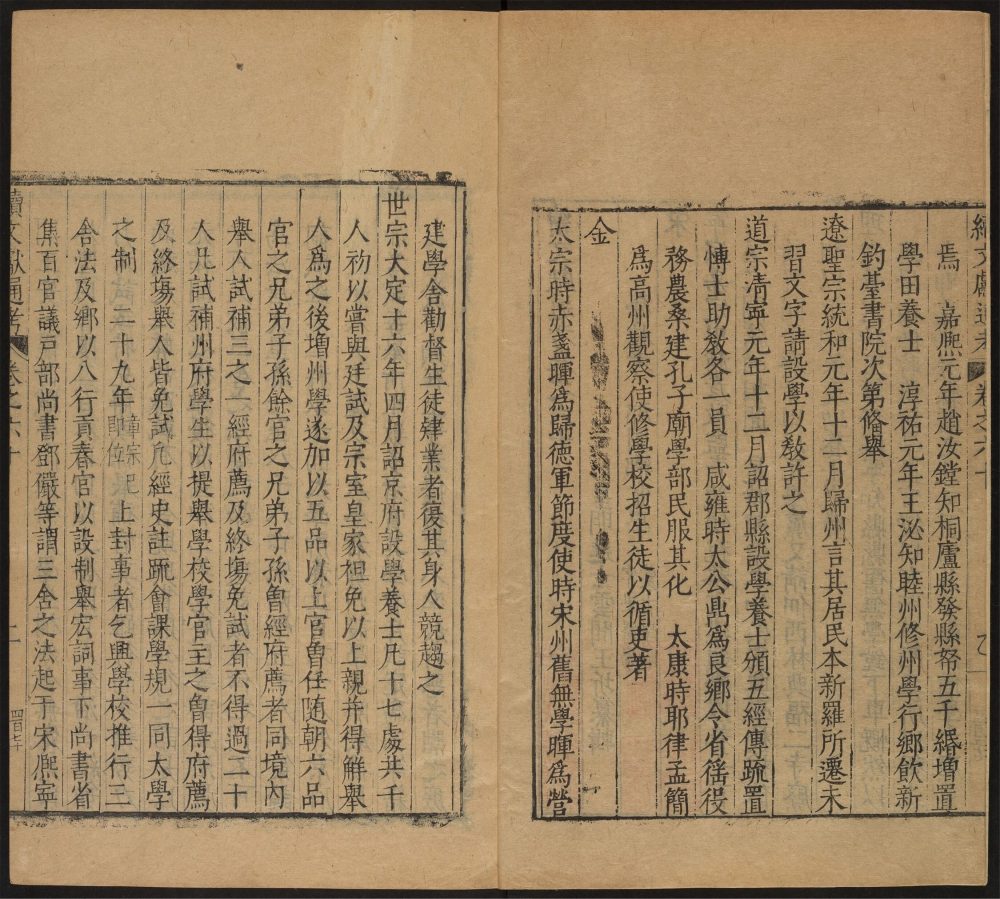 續文獻通考 卷之六十
焉 嘉熙元年趙汝鏜知桐廬縣發縣帑五千緡增置
學田養士 淳祐元年王泌知睦州修州學行鄉飲新
釣臺書院次第備舉
遼聖宗統和元年十二月歸州言其居民本新羅所遷未
習文字請設學以敎許之
道宗清寧元年十二月詔郡縣設學養士頒五經傳疏置
博士助敎各一員 咸雍時太公鼎爲良鄉令省徭役
務農桑建孔子廟學部民服其化 太康時耶律孟簡
爲高州觀察使修學校招生徒以循吏著
金
太宗時赤盞暉爲歸德軍節度使時宋州舊無學暉爲營
建學舍勸督生徒肄業者復其身人競趨之
世宗大定十六年四月詔京府設學養士凡十七處共千
人初以嘗與廷試及宗室皇家袒免以上親并得解舉
人爲之後增州學遂加以五品以上官曾任隨朝六品
官之兄弟子孫餘官之兄弟子孫曾經府薦者同境內
舉人試補三之一經府薦及終塲免試者不得過二十
人凡試補州府學生以提舉學校學官主之曾得府薦
及終塲舉人皆免試凡經史註疏會課學規一同太學
之制 二十九年章宗即位上封事者乞興學校推行三
舍法及鄉以八行貢春官以設制舉宏詞事下尚書省
集百官議戸部尚書鄧儼等謂三舍之法起于宋熙寧
續文獻通考 卷之六十 二